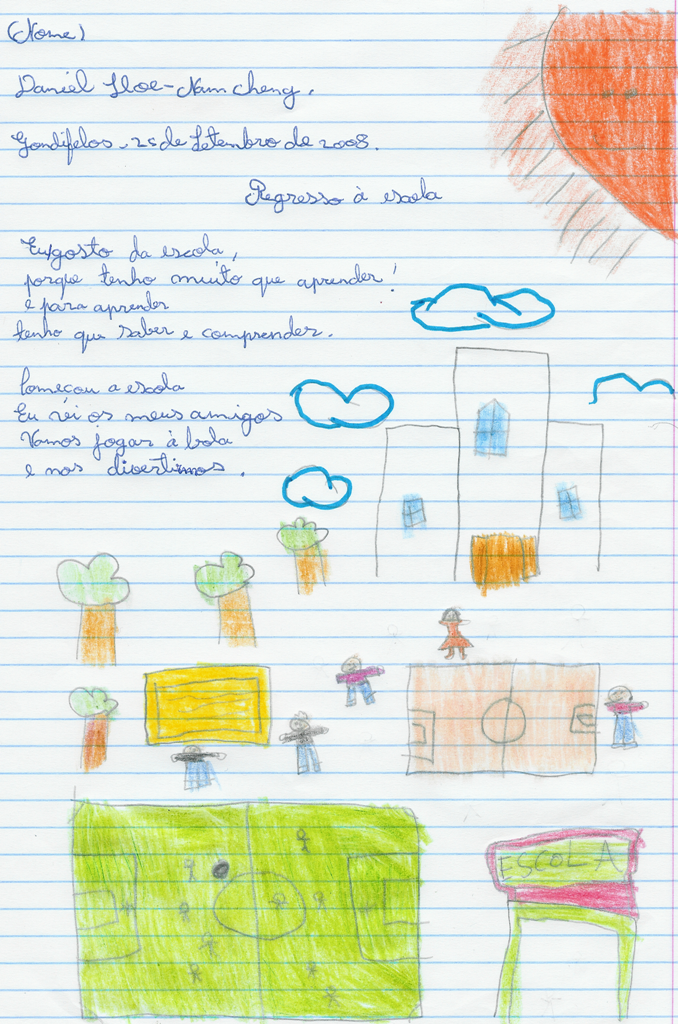 (Nome)
Daniel Hoe-Nam cheng.
Gondifelos, 25 de Setembro de 2008.
Regresso à escola
Eu gosto da escola,
porque tenho muito que aprender!
e para aprender
tenho que saber e comprender.
Começou a escola
Eu vei os meus amigos
Vamos jogar à bola
e nos divertimos.
ESCOLA